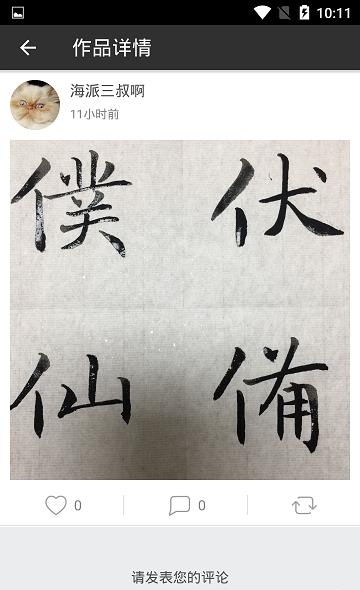 10:11
作品详情
海派三叔啊
11小时前
僕 伏
仙 備
0 0
请发表您的评论